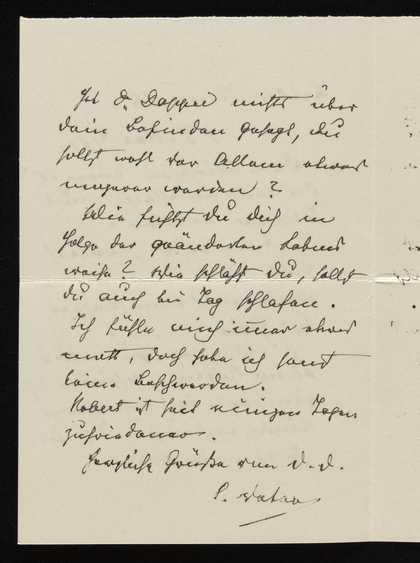 Hat D. Dapper nichts über
dein Befinden gesagt, du
sollst wohl vor Allem etwas
magerer werden?
Wie fühlst Du dich in
Folge der geänderten Lebens
weise? Wie schläfst Du, sollst
Du auch bei Tag schlafen.
Ich fühle mich immer etwas
matt, doch habe ich sonst
keine Beschwerden.
Robert ist seit einigen Tagen
zufriedener.
Herzliche Grüße von d. d.
l. Vater